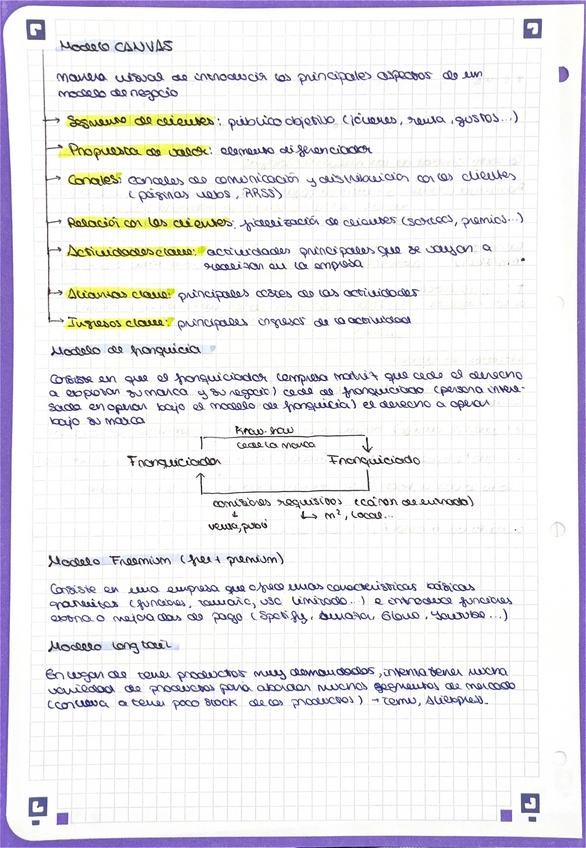 Modelo CANVAS
manera visual de introducir los principales aspectos de un
modelo de negocio
→ Segmento de clientes: público objetivo (jóvenes, renta, gustos...)
→ Propuesta de valor: elemento diferenciador
→ Canales: canales de comunicación y distribución con los clientes
(páginas webs, RRSS)
→ Relación con los clientes: fidelización de clientes (sorteos, premios...)
→ Actividades clave: actividades principales que se vayan a
realizar en la empresa
→ Alianzas clave: principales costes de las actividades
→ Ingresos clave: principales ingresos de la actividad
Modelo de franquicia
Consiste en que el franquiciador (empresa matriz que cede el derecho
a explotar su marca y su negocio) cede al franquiciado (persona intere-
sada en operar bajo el modelo de franquicia) el derecho a operar
bajo su marca
Know-how
cede la marca
Franquiciador Franquiciado
comisiones requisitos (canon de entrada)
↓ ↳ m², local...
venta, publi
Modelo Freemium (free + premium)
Consiste en una empresa que ofrece unas características básicas
gratuitas (funciones, tamaño, uso limitado...) e introduce funciones
extra o mejoradas de pago (Spotify, Amazon, Glovo, Youtube...)
Modelo long tail
En lugar de tener productos muy demandados, intenta tener mucha
variedad de productos para abordar muchos segmentos de mercado
(conlleva a tener poco stock de los productos) → Temu, Aliexpress.